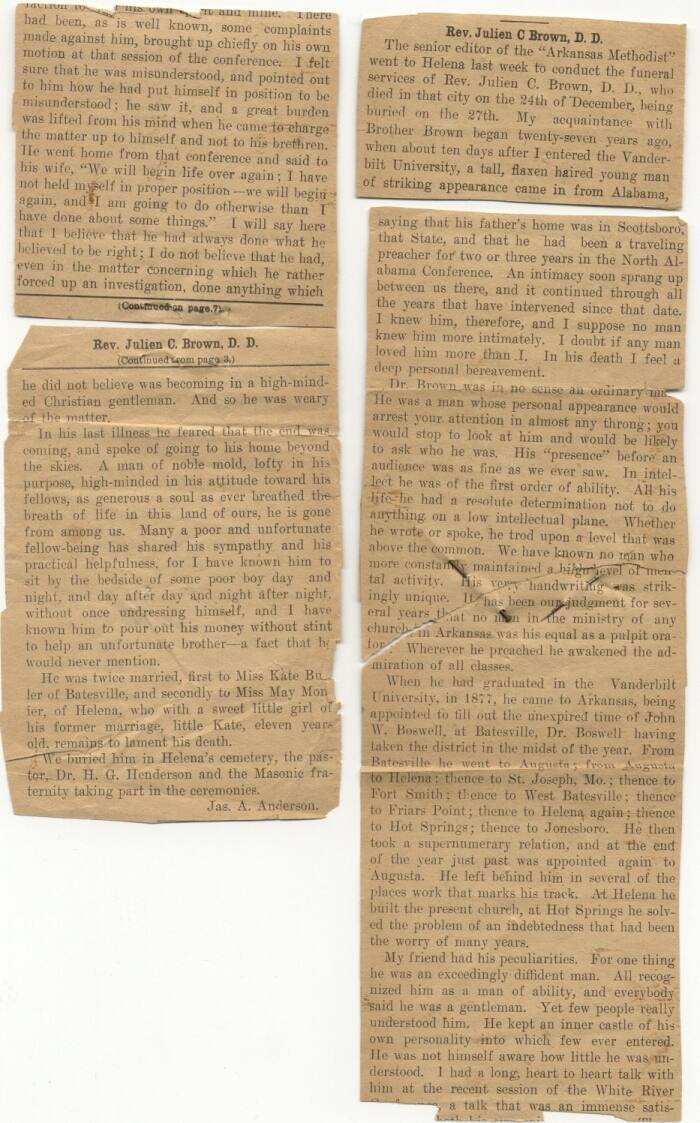 Rev. Julien C Brown, D. D.
The senior editor of the "Arkansas Methodist"
went to Helena last week to conduct the funeral
services of Rev. Julien C. Brown, D. D., who
died in that city on the 24th of December, being
buried on the 27th. My acquaintance with
Brother Brown began twenty-seven years ago,
when about ten days after I entered the Vander-
bilt University, a tall, flaxen haired young man
of striking appearance came in from Alabama,
saying that his father's home was in Scottsboro,
that State, and that he had been a traveling
preacher for two or three years in the North Al-
abama Conference. An intimacy soon sprang up
between us there, and it continued through all
the years that have intervened since that date.
I knew him, therefore, and I suppose no man
knew him more intimately. I doubt if any man
loved him more than I. In his death I feel a
deep personal bereavement.
Dr. Brown was in no sense an ordinary
He was a man whose personal appearance would
arrest your attention in almost any throng; you
would stop to look at him and would be likely
to ask who he was. His "presence" before an
audience was as fine as we ever saw. In intel-
lect he was of the first order of ability. All his
life he had a resolute determination not to do
anything on a low intellectual plane. Whether
he wrote or spoke, he trod upon a level that was
above the common. We have known no man who
more constantly maintained a high level of men-
tal activity. His very handwriting was strik-
ingly unique. It has been our judgment for sev-
eral years that no man in the ministry of any
church in Arkansas was his equal as a pulpit ora-
tor. Wherever he preached he awakened the ad-
miration of all classes.
When he had graduated in the Vanderbilt
University, in 1877, he came to Arkansas, being
appointed to fill out the unexpired time of John
W. Boswell, at Batesville, Dr. Boswell having
taken the district in the midst of the year. From
Batesville he went to Augusta; from Augusta
to Helena; thence to St. Joseph, Mo.; thence to
Fort Smith; thence to West Batesville; thence
to Friars Point; thence to Helena again; thence
to Hot Springs; thence to Jonesboro. He then
took a supernumerary relation, and at the end
of the year just past was appointed again to
Augusta. He left behind him in several of the
places work that marks his track. At Helena he
built the present church, at Hot Springs he solv-
ed the problem of an indebtedness that had been
the worry of many years.
My friend had his peculiarities. For one thing
he was an exceedingly diffident man. All recog-
nized him as a man of ability, and everybody
said he was a gentleman. Yet few people really
understood him. He kept an inner castle of his
own personality into which few ever entered.
He was not himself aware how little he was un-
derstood. I had a long, heart to heart talk with
him at the recent session of the White River
a talk that was an immense satis-
faction to his own spirit and mine. There
had been, as is well known, some complaints
made against him, brought up chiefly on his own
motion at that session of the conference. I felt
sure that he was misunderstood, and pointed out
to him how he had put himself in position to be
misunderstood; he saw it, and a great burden
was lifted from his mind when he came to charge
the matter up to himself and not to his brethren.
He went home from that conference and said to
his wife, "We will begin life over again; I have
not held myself in proper position—we will begin
again, and I am going to do otherwise than I
have done about some things." I will say here
that I believe that he had always done what he
believed to be right; I do not believe that he had,
even in the matter concerning which he rather
forced up an investigation, done anything which
(Continued on page 7).
Rev. Julien C. Brown, D. D.
(Continued from page 3.)
he did not believe was becoming in a high-mind-
ed Christian gentleman. And so he was weary
of the matter.
In his last illness he feared that the end was
coming, and spoke of going to his home beyond
the skies. A man of noble mold, lofty in his
purpose, high-minded in his attitude toward his
fellows, as generous a soul as ever breathed the
breath of life in this land of ours, he is gone
from among us. Many a poor and unfortunate
fellow-being has shared his sympathy and his
practical helpfulness, for I have known him to
sit by the bedside of some poor boy day and
night, and day after day and night after night,
without once undressing himself, and I have
known him to pour out his money without stint
to help an unfortunate brother—a fact that he
would never mention.
He was twice married, first to Miss Kate
ler of Batesville, and secondly to Miss May
ier, of Helena, who with a sweet little girl of
his former marriage, little Kate, eleven years
old, remains to lament his death.
We buried him in Helena's cemetery, the pas-
tor, Dr. H. G. Henderson and the Masonic fra-
ternity taking part in the ceremonies.
Jas. A. Anderson.